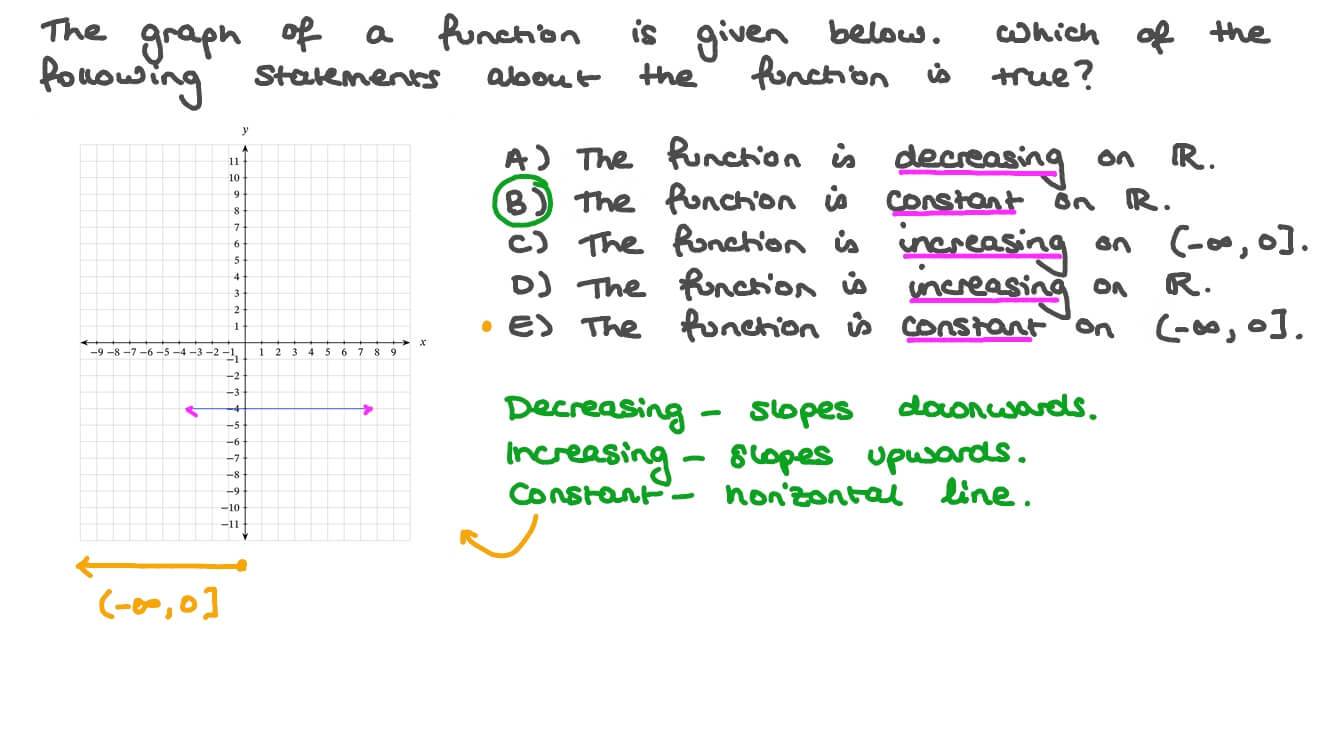 The graph of a function is given below. Which of the
following statements about the function is true?
A) The function is decreasing on ℝ.
B) The function is constant on ℝ.
C) The function is increasing on (-∞, 0].
D) The function is increasing on ℝ.
E) The function is constant on (-∞, 0].
y
11
10
9
8
7
6
5
4
3
2
1
x
−9 −8 −7 −6 −5 −4 −3 −2 −1 1 2 3 4 5 6 7 8 9
−1
−2
−3
−4
−5
−6
−7
−8
−9
−10
−11
Decreasing - slopes downwards.
Increasing - slopes upwards.
Constant - horizontal line.
(-∞, 0]